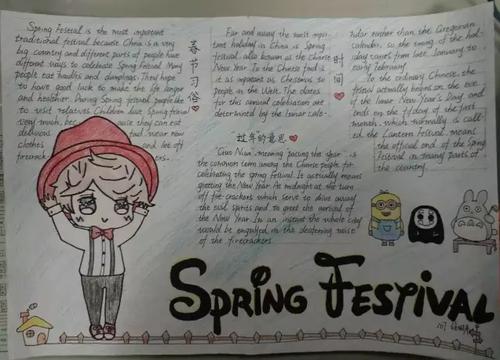 Spring Festival is the most important
traditional festival because China is a very
big country and different parts of people have
different ways to celebrate Spring Festival. Many
people eat haudles and dumplings. They hope
to have good luck to make the life longer
and healthier. During Spring festival people like
to visit relatives. Children love Spring festival
very much, because they can eat
delicious wear new
clothes and let off
firecrack
春节习俗
Far and away the most impor-
tant holiday in China is Spring
festival, also known as the Chinese
New Year. To the Chinese people
it as important as Christmas to
people in the West. The dates
for this annual celebration are
determined by the lunar cale-
时间
ndar rather than the Gregorian
calendar, so the timing of the hol-
iday varies from late January to
early February.
To the ordinary Chinese, the
festival actually begins on the eve
of the lunar New Year's Day and
ends on the fifth day of the first
month which normally is call-
ed the Lantern Festival, means
the official end of the Spring
Festival in many parts of
the country.
过年的意思
"Guo Nian," meaning passing the year, is
the common term among the Chinese people for
celebrating the spring festival. It actually means
greeting the New Year. At midnight at the turn
off fire-crackers which serve to drive away
the evil spirits and to greet the arrival of
the New Year. In an instant the whole city
would be engulfed in the deafening noise
of the firecrackers.
SPRING FESTIVAL